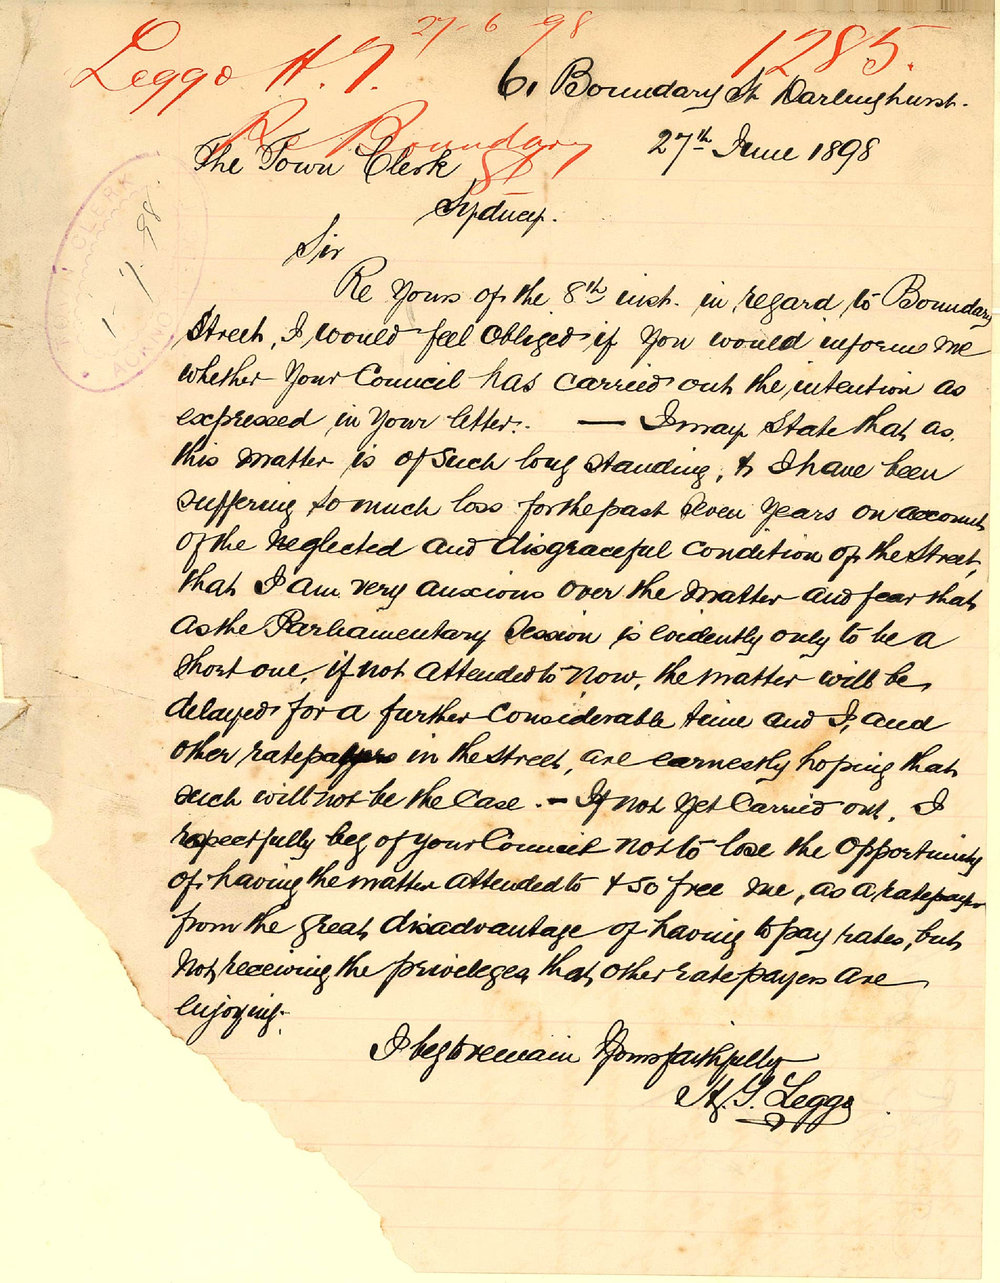 27-6-98
Leggo H. G. 1285.
6, Boundary St Darlinghurst.
Re Boundary St
27th June 1898
The Town Clerk
Sydney.
TOWN CLERK
1-7-98
Sir
Re Yours of the 8th inst. in regard to Boundary
Street, I would feel obliged if you would inform me
whether Your Council has carried out the intention as
expressed in Your letter. — I may State that as
this matter is of such long standing, & I have been
suffering so much loss for the past seven years on account
of the neglected and disgraceful condition of the Street,
that I am very anxious over the matter and fear that
as the Parliamentary Session is evidently only to be a
short one, if not attended to now, the matter will be
delayed for a further considerable time and I, and
other ratepayers in the street, are earnestly hoping that
such will not be the case. — If not yet Carried out, I
respectfully beg of your Council not to lose the opportunity
of having the matter attended to & so free me, as a ratepayer
from the great disadvantage of having to pay rates, but
not receiving the privileges that other ratepayers are
enjoying.
I beg to remain Yours faithfully
H. G. Leggo